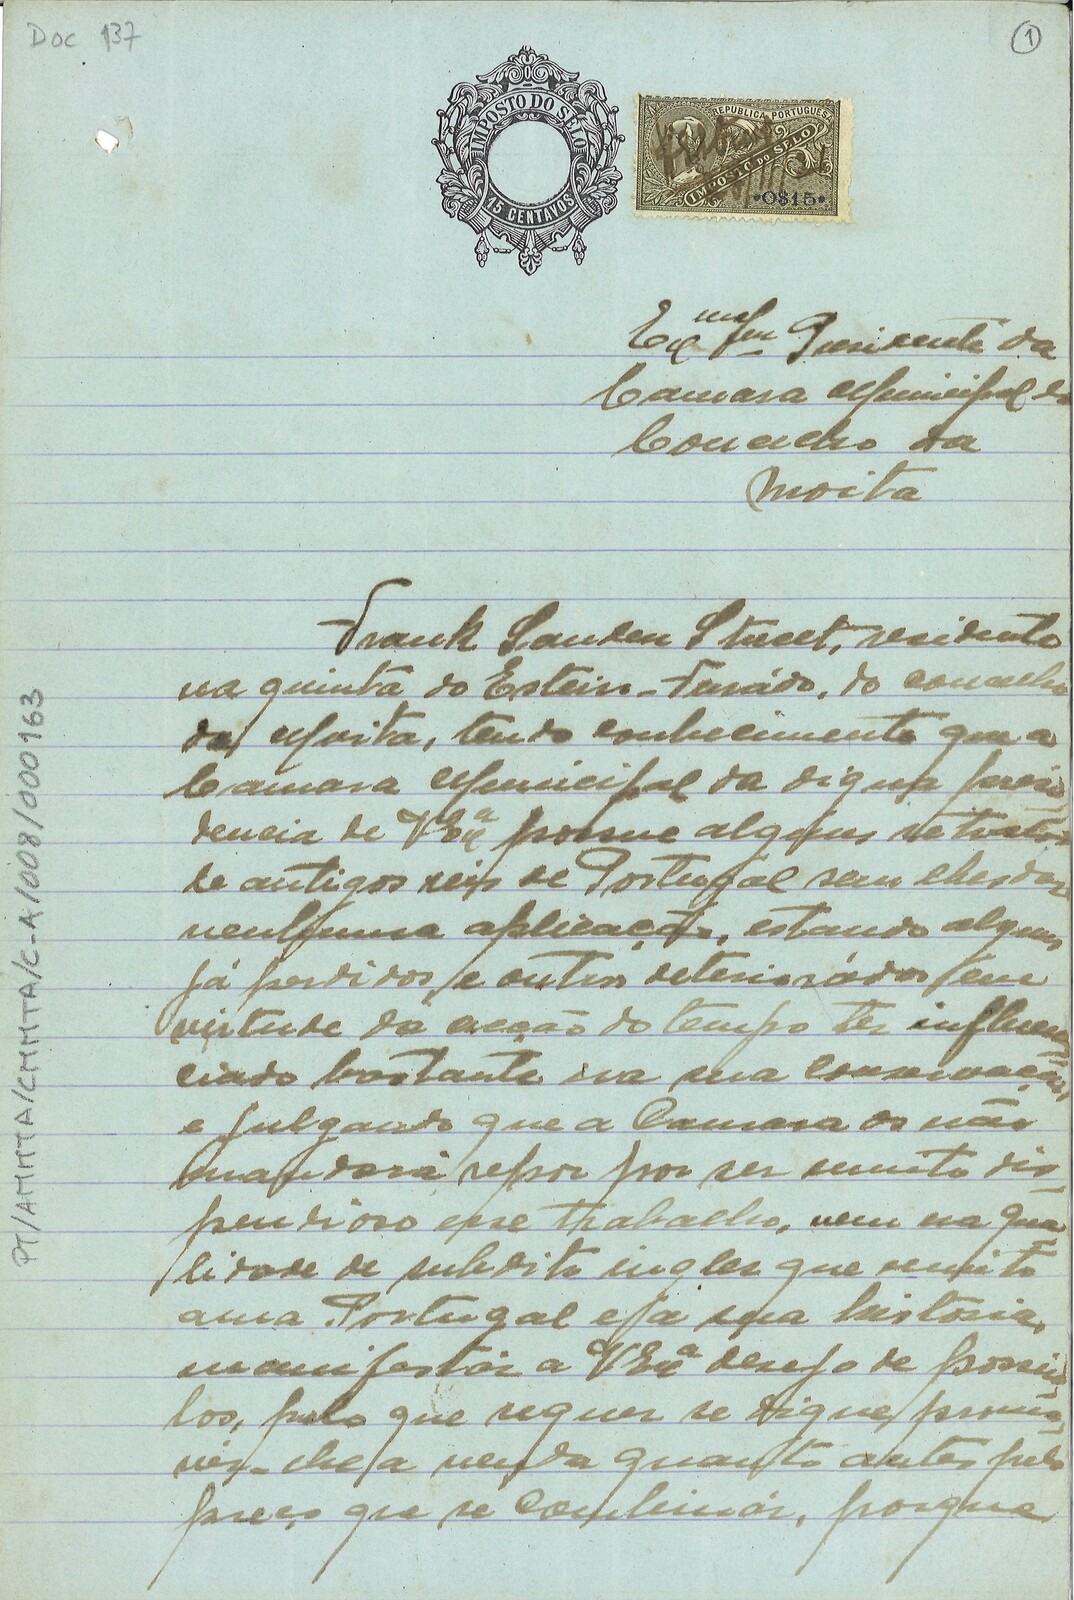 Doc 137
1
IMPOSTO DO SELO
15 CENTAVOS
REPUBLICA PORTUGUESA
IMPOSTO DO SELO
0$15
Exmo Snr Presidente da
Camara Municipal do
Concelho da
Moita
Frank Sanden Street, residente
na quinta do Esteiro-Furádo, do concelho
da Moita, tendo conhecimento que a
Camara Municipal da digna presi-
dencia de V Exa possue alguns retratos
de antigos reis de Portugal sem lhes dar
nenhuma aplicação, estando alguns
já perdidos, e outros deteriorádos em
virtude da acção do tempo ter influen-
ciado bastante na sua conservação,
e julgando que a Camara os não
mandará repor por ser muito dis-
pendioso esse trabalho, vem na qua-
lidade de subdito ingles que muito
ama Portugal e já sua história,
manifestár a V Exa desejo de possui-
los, pelo que requer se digne promo-
ver-lhe a venda quanto antes pelo
preço que se combinár, porque
PT/AMMTA/CMMTA/C-A/008/000163